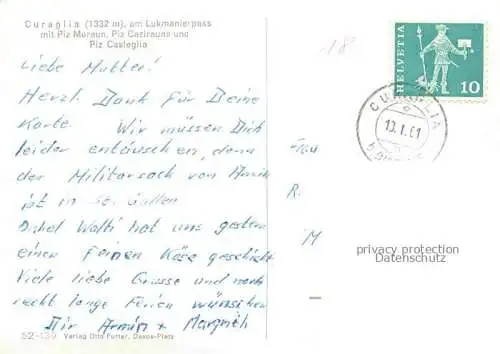 Curaglia (1332 m), am Lukmanierpass
mit Piz Muraun, Piz Cazirauns und
Piz Casleglia
18
HELVETIA
10
CURAGLIA
13.1.61
Liebe Mutter!
Herzl. Dank für Deine
Karte. Wir müssen Dich
leider entäuschen, denn
der Militärsach von Armin
ist in St. Gallen
Onkel Walti hat uns gestern
einen feinen Käse geschickt
Viele liebe Grüsse und noch
recht lange Ferien wünschen
Dir Armin + Margrith
Frau
R.
M
privacy protection
Datenschutz
52-139 Verlag Otto Furter, Davos-Platz